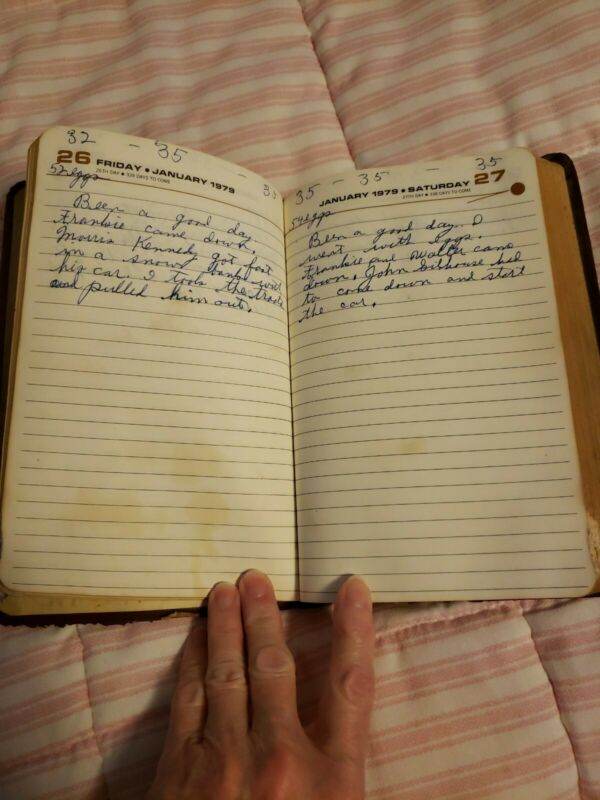 32 - 35 - 35
26 FRIDAY • JANUARY 1979
26TH DAY • 339 DAYS TO COME
52 eggs
Been a good day.
Frankie came down.
Morris Kennedy got fast
in a snow bank with
his car. I took the
and pulled him out.
35 - 35 - 35
JANUARY 1979 • SATURDAY 27
27TH DAY • 338 DAYS TO COME
54 eggs
Been a good day. I
went with eggs.
Frankie and Walter came
down. John had
to come down and start
the car.